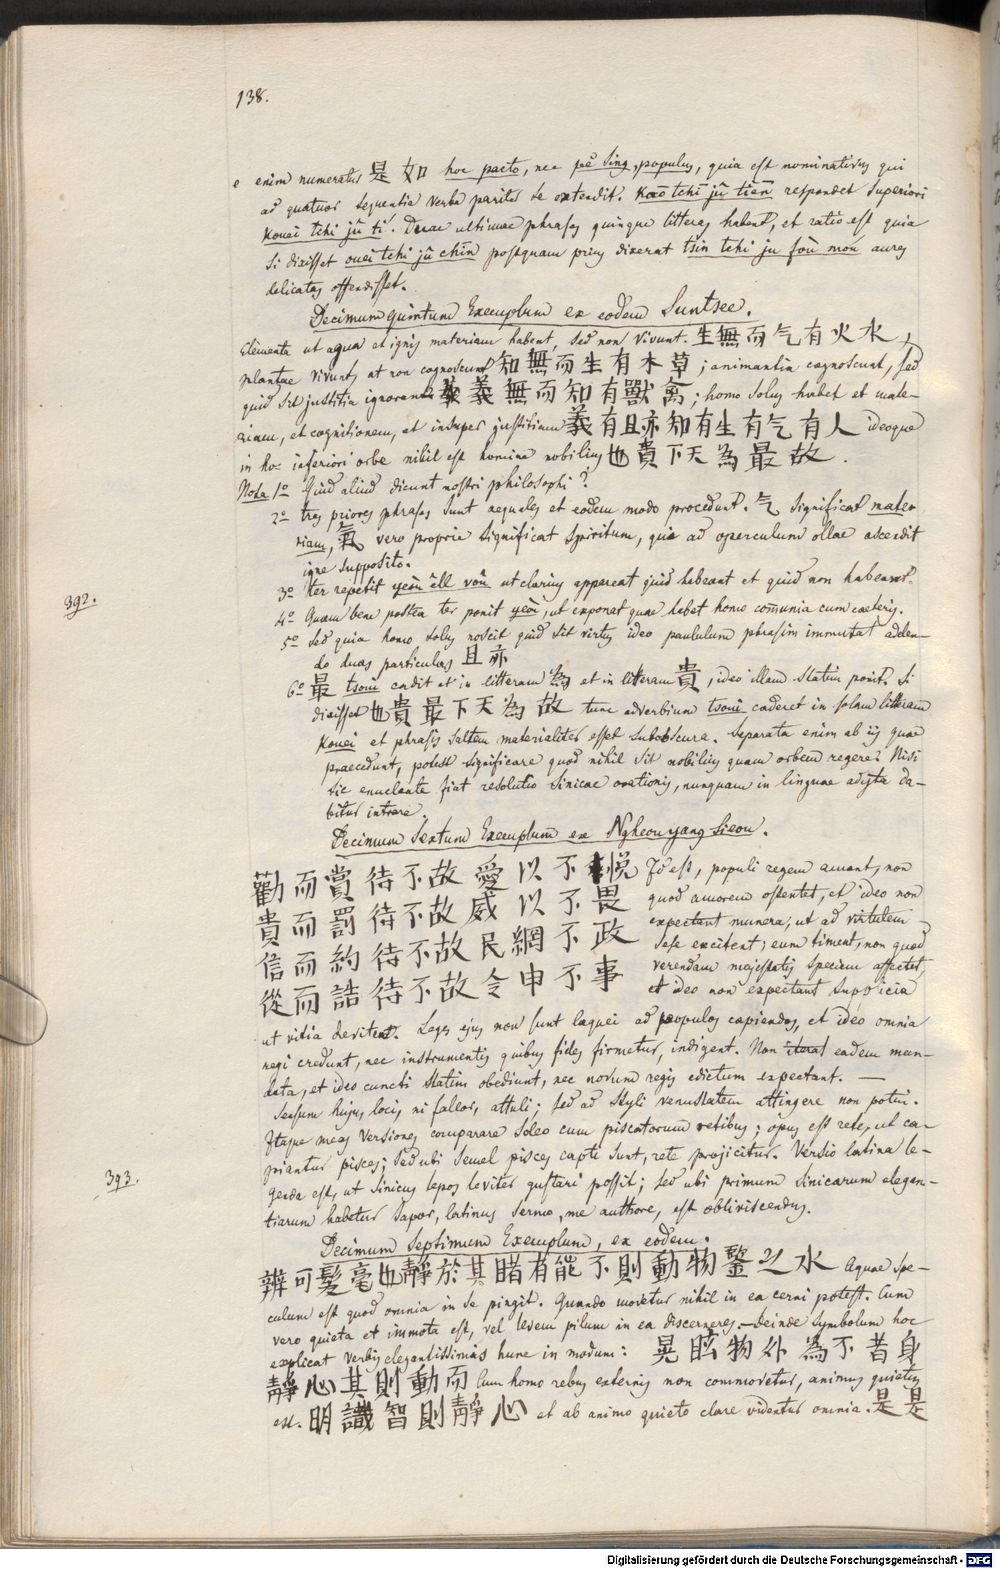 138.
e enim numeratus 是 如 hoc pacto, nec pĕ sing, populus, quia est nominativus qui
ad quatuor sequentia verba pariter se extendit. Kaō tchī jû tiēn respondet superiori
Kouei tchi jû tí. Duae ultimae phrases quinque litteras habent, et ratio est quia
si dixisset ouei tchi jû chîn postquam prius dixerat tsin tchi ju foū moù aures
delicatas offendisset.
Decimum quintum Exemplum ex eodem Suntsee.
Elementa ut aqua et ignis materiam habent, sed non vivunt. 生無而气有火水,
plantae vivunt, at non cognoscunt 知無而生有木草; animantia cognoscunt, sed
quid sit justitia ignorant 義無而知有獸禽; homo solus habet et mate-
riam, et cognitionem, et insuper justitiam 義有且亦知有生有气有人 ideoque
in hoc inferiori orbe nihil est homine nobilius 也貴下天為最故.
Nota 1º Quid aliud dicunt nostri philosophi?
2º tres priores phrases sunt aequales et eodem modo procedunt. 气 significat mate-
riam, 氣 vero proprie significat spiritum, qui ad operculum ollae ascendit
igne supposito.
392.
3º ter repetit yeòu êll voû ut clarius appareat quid habeant et quid non habeant.
4º Quam bene postea ter ponit yeòu, ut exponat quae habet homo communia cum caeteris.
5º sed quia homo solus noscit quid sit virtus ideo paululum phrasim immutat adden-
do duas particulas 且亦
6º 最 tsoui cadit et in litteram 為 et in litteram 貴, ideo illam statim ponit. Si
dixisset 也貴最下天為故 tunc adverbium tsoui caderet in solam litteram
Kouei et phrasis saltem materialiter esset subobscura. Separata enim ab iis quae
praecedunt, potest significare quod nihil sit nobilius quam orbem regere: Nisi
sic enucleate fiat resolutio sinicae orationis, nunquam in linguae adyta da-
bitur intrare.
Decimum Sextum Exemplum ex Ngheou yang sieou.
勸而賞待不故愛以不悅 Id est, populi regem amant, non
quod amorem ostentet, et ideo non
貴而罰待不故威以不畏 expectant munera, ut ad virtutem
sese excitent; eum timent, non quod
信而約待不故民網不政 verendam majestatis speciem affectet,
從而誥待不故令申不事 et ideo non expectant supplicia
ut vitia devitent. Leges ejus non sunt laquei ad populos capiendos, et ideo omnia
regi credunt, nec instrumentis quibus fides firmetur, indigent. Non iterat eadem man-
data, et ideo cuncti statim obediunt, nec novum regis edictum expectant. —
Sensum hujus loci, ni fallor, attuli; sed ad styli venustatem attingere non potui.
Itaque meas versiones comparare soleo cum piscatorum retibus; opus est rete, ut ca-
piantur pisces; sed ubi semel pisces capti sunt, rete projicitur. Versio latina le-
393.
genda est, ut sinicus lepos leviter gustari possit; sed ubi primum sinicarum elegan-
tiarum habetur sapor, latinus sermo, me authore, est obliviscendus.
Decimum Septimum Exemplum, ex eodem.
辨可髮毫也靜於其睹有能不則動物鑒之水 Aquae spe-
culum est quod omnia in se pingit. Quando movetur nihil in ea cerni potest. Cum
vero quieta et immota est, vel levem pilum in ea discerneres.— Deinde symbolum hoc
explicat verbis elegantissimis hunc in modum: 晃眩物外為不昔身
靜心其則動而 Cum homo rebus externis non commovetur, animus quietus
est. 明識智則靜心 et ab animo quieto clare videntur omnia. 是是
Digitalisierung gefördert durch die Deutsche Forschungsgemeinschaft - DFG